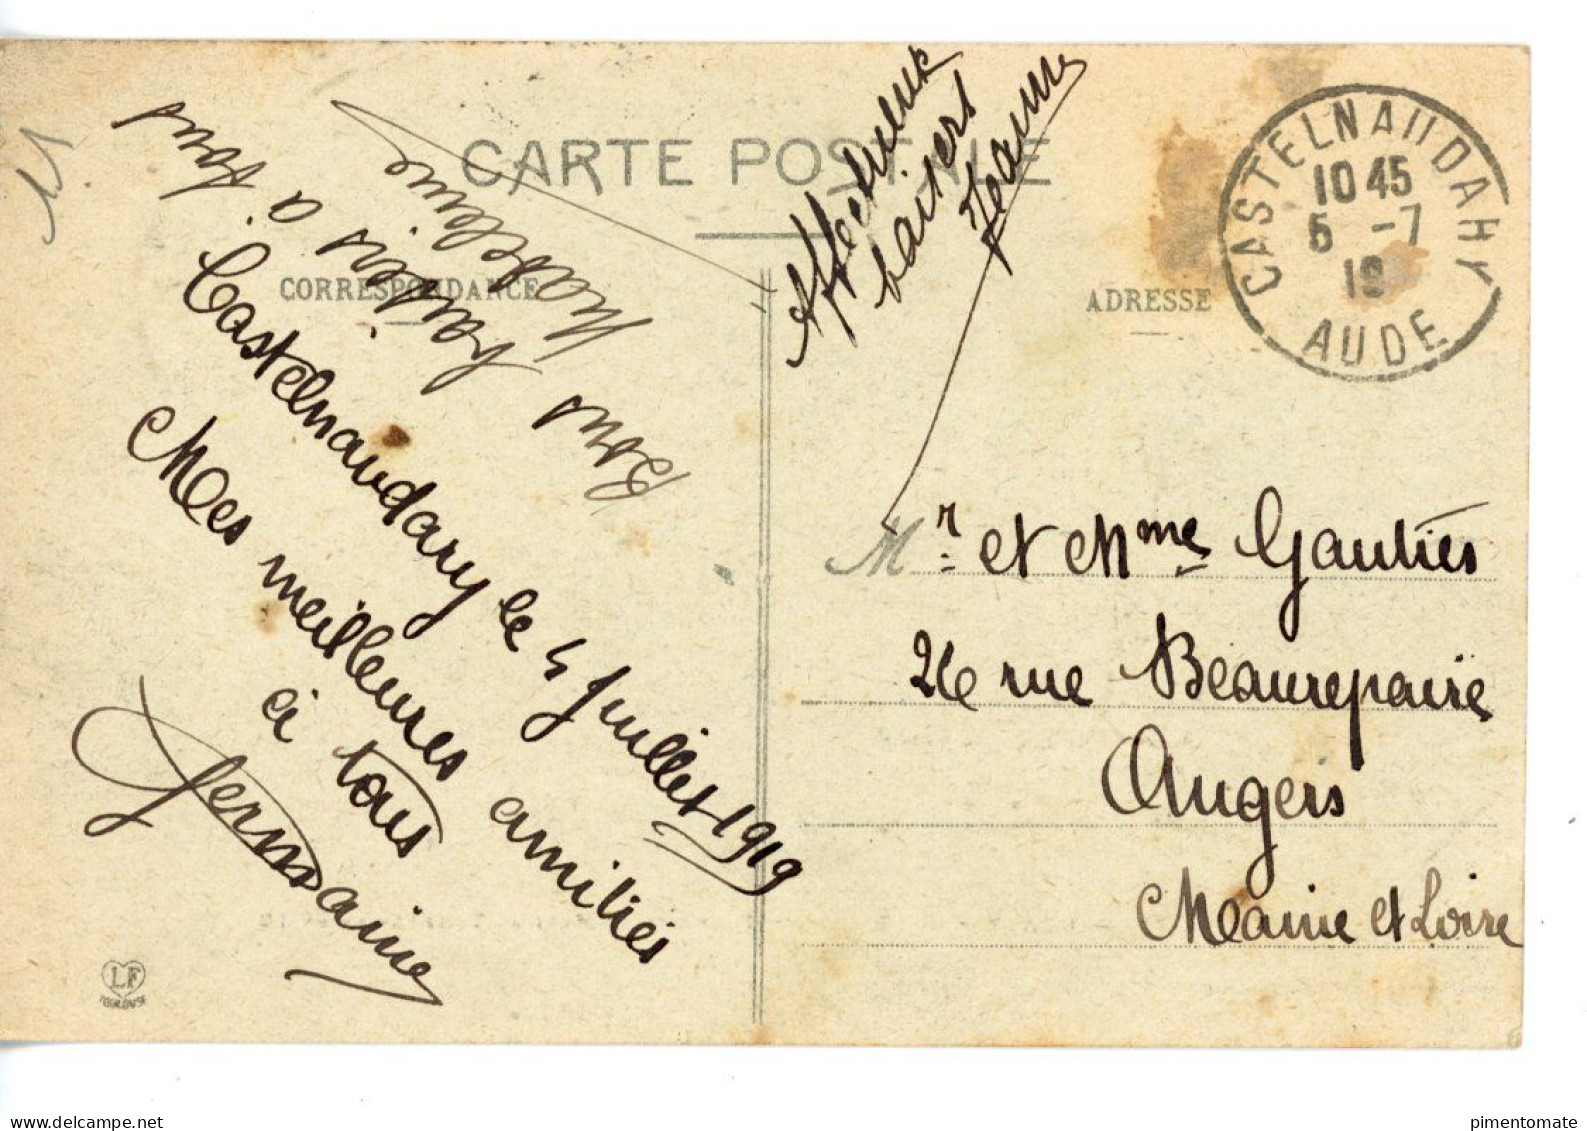 CARTE POSTALE
CORRESPONDANCE
ADRESSE
CASTELNAUDARY
10 45
5 -7
19
AUDE
Castelnaudary le 4 Juillet 1919
Mes meilleures amitiés
à tous
Germaine
Bons baisers à tous
Madeleine
Affectueux
baisers
Jeanne
Mr et Mme Gautier
26 rue Beaurepaire
Angers
Maine et Loire
LF
TOULOUSE
pimentomate